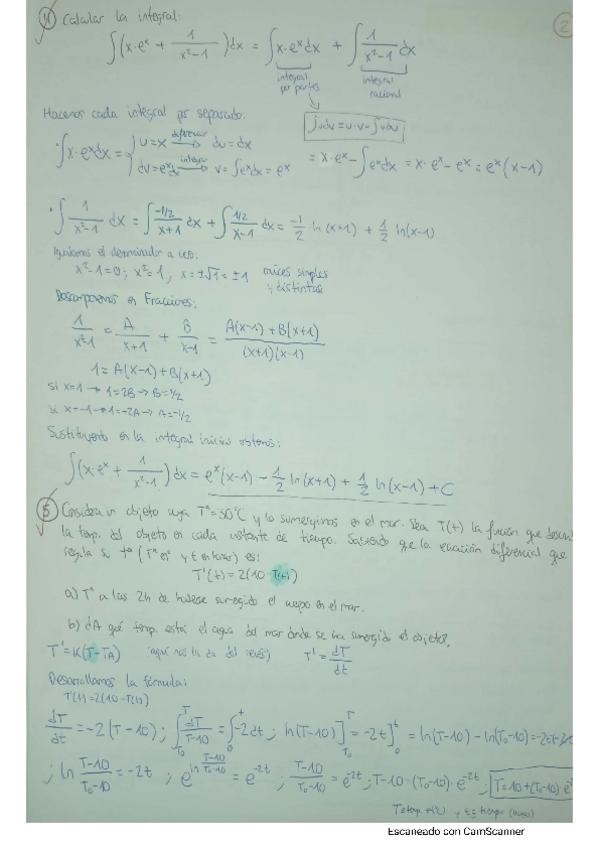 2
4) Calcular la integral:
∫(x·eˣ + 1/(x²-1))dx = ∫x·eˣdx + ∫1/(x²-1) dx
integral por partes
integral racional
Hacemos cada integral por separado.
∫udv = u·v - ∫vdu
· ∫x·eˣdx = { u=x derivar → du=dx
dv=eˣdx integrar → v=∫eˣdx = eˣ
= x·eˣ - ∫eˣdx = x·eˣ - eˣ = eˣ(x-1)
· ∫1/(x²-1) dx = ∫(-1/2)/(x+1) dx + ∫(1/2)/(x-1) dx = -1/2 ln(x+1) + 1/2 ln(x-1)
Igualamos el denominador a cero:
x²-1=0; x²=1; x=±√1=±1 raíces simples y distintas
Descomponemos en Fracciones:
1/(x²-1) = A/(x+1) + B/(x-1) = (A(x-1)+B(x+1))/((x+1)(x-1))
1 = A(x-1)+B(x+1)
si x=1 → 1=2B → B=1/2
si x=-1 → 1=-2A → A=-1/2
Sustituyendo en la integral inicial obtenemos:
∫(x·eˣ + 1/(x²-1))dx = eˣ(x-1) - 1/2 ln(x+1) + 1/2 ln(x-1) + C
5) Considera un objeto cuya Tª=30ºC y lo sumergimos en el mar. Sea T(t) la función que
la temp. del objeto en cada instante de tiempo. Sabiendo que la ecuación diferencial que
regula su tª (Tª en º y t en horas) es:
T'(t)=2(10-T(t))
a) Tª a las 2h de haberse sumergido el cuerpo en el mar.
b) ¿A qué temp. está el agua del mar donde se ha sumergido el objeto?
T'=K(T-TA) (aquí nos la da del revés) T'=dT/dt
Desarrollamos la fórmula:
T'(t)=2(10-T(t))
dT/dt = -2(T-10); ∫dT/(T-10) = ∫-2dt; ln(T-10)] = -2t] = ln(T-10) - ln(T₀-10) = -2t
; ln (T-10)/(T₀-10) = -2t ; e^(ln (T-10)/(T₀-10)) = e^(-2t) ; (T-10)/(T₀-10) = e^(-2t) ; T-10 = (T₀-10)·e^(-2t) ; T=10+(T₀-10)·e
T=temp (ºC) y t=tiempo (horas)
Escaneado con CamScanner